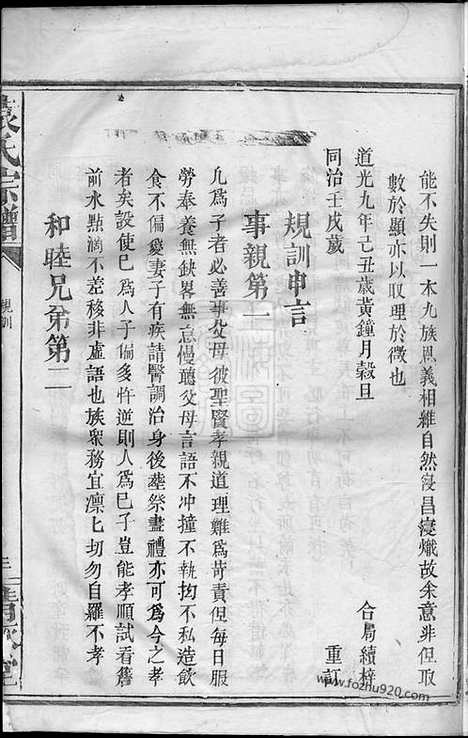 能不失則一本九族恩義相維自然寖昌寖熾故余意非但取
數於顯亦以取理於微也
道光九年己丑歲黃鐘月穀旦 合局續梓
同治壬戌歲 重訂
規訓申言
事親第一
凡為子者必善事父母彼聖賢孝親道理難為苛責但每日服
勞奉養無缺畧無怠慢聽父母言語不冲撞不執拗不私造飲
食不偏愛妻子有疾請醫調治身後葬祭盡禮亦可為今之孝
者矣設使已為人子偏多忤逆則人為已子豈能孝順試看簷
前水點滴不差移非虛語也族衆務宜凜匕切勿自羅不孝
和睦兄弟第二
袁氏宗譜
規訓
www.fozhu920.com